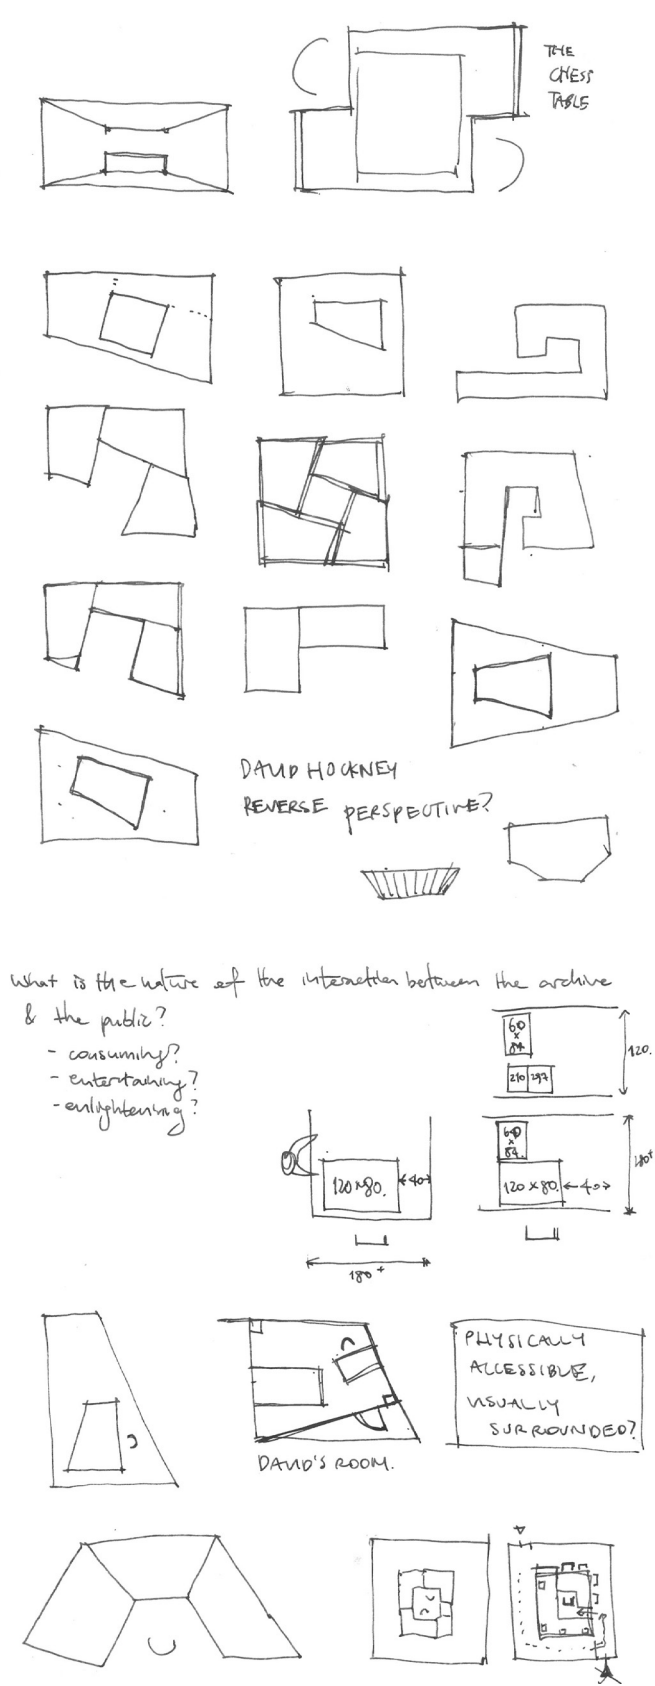 THE
CHESS
TABLE
DAVID HOCKNEY
REVERSE PERSPECTIVE?
What is the nature of the interaction between the archive
& the public?
- consuming?
- entertaining?
- enlightening?
60
x
84
120.
210 297
60
x
84.
180+
120 x 80.
40
120 x 80.
40
180+
PHYSICALLY
ACCESSIBLE,
VISUALLY
SURROUNDED?
DAVID'S ROOM.